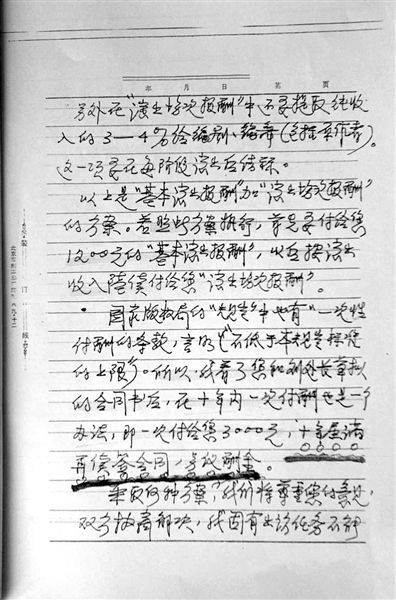 年 月 日 第 页
另外在“演出场次报酬”中还要提取纯收
入的3—4%给编剧、编舞(包括原作者)。
这一项要在每阶段演出后结算。
以上是“基本演出报酬”加“演出场次报酬”
的方案。若照此方案执行,首先要付给您
1200元的“基本演出报酬”,以后按演出
收入陆续付给您“演出场次报酬”。
国家版权局的“规定”中也有“一次性
付酬的条款,言明(“不低于本规定标准
的上限”)。所以,我看了您和副处长草拟
的合同书后,在十年内一次付酬也是一个
办法,即一次付给您3000元,十年届满
再续签合同,另议酬金。
采取何种方案,我们将尊重您的意见,
双方协商解决,我因有出访任务不能